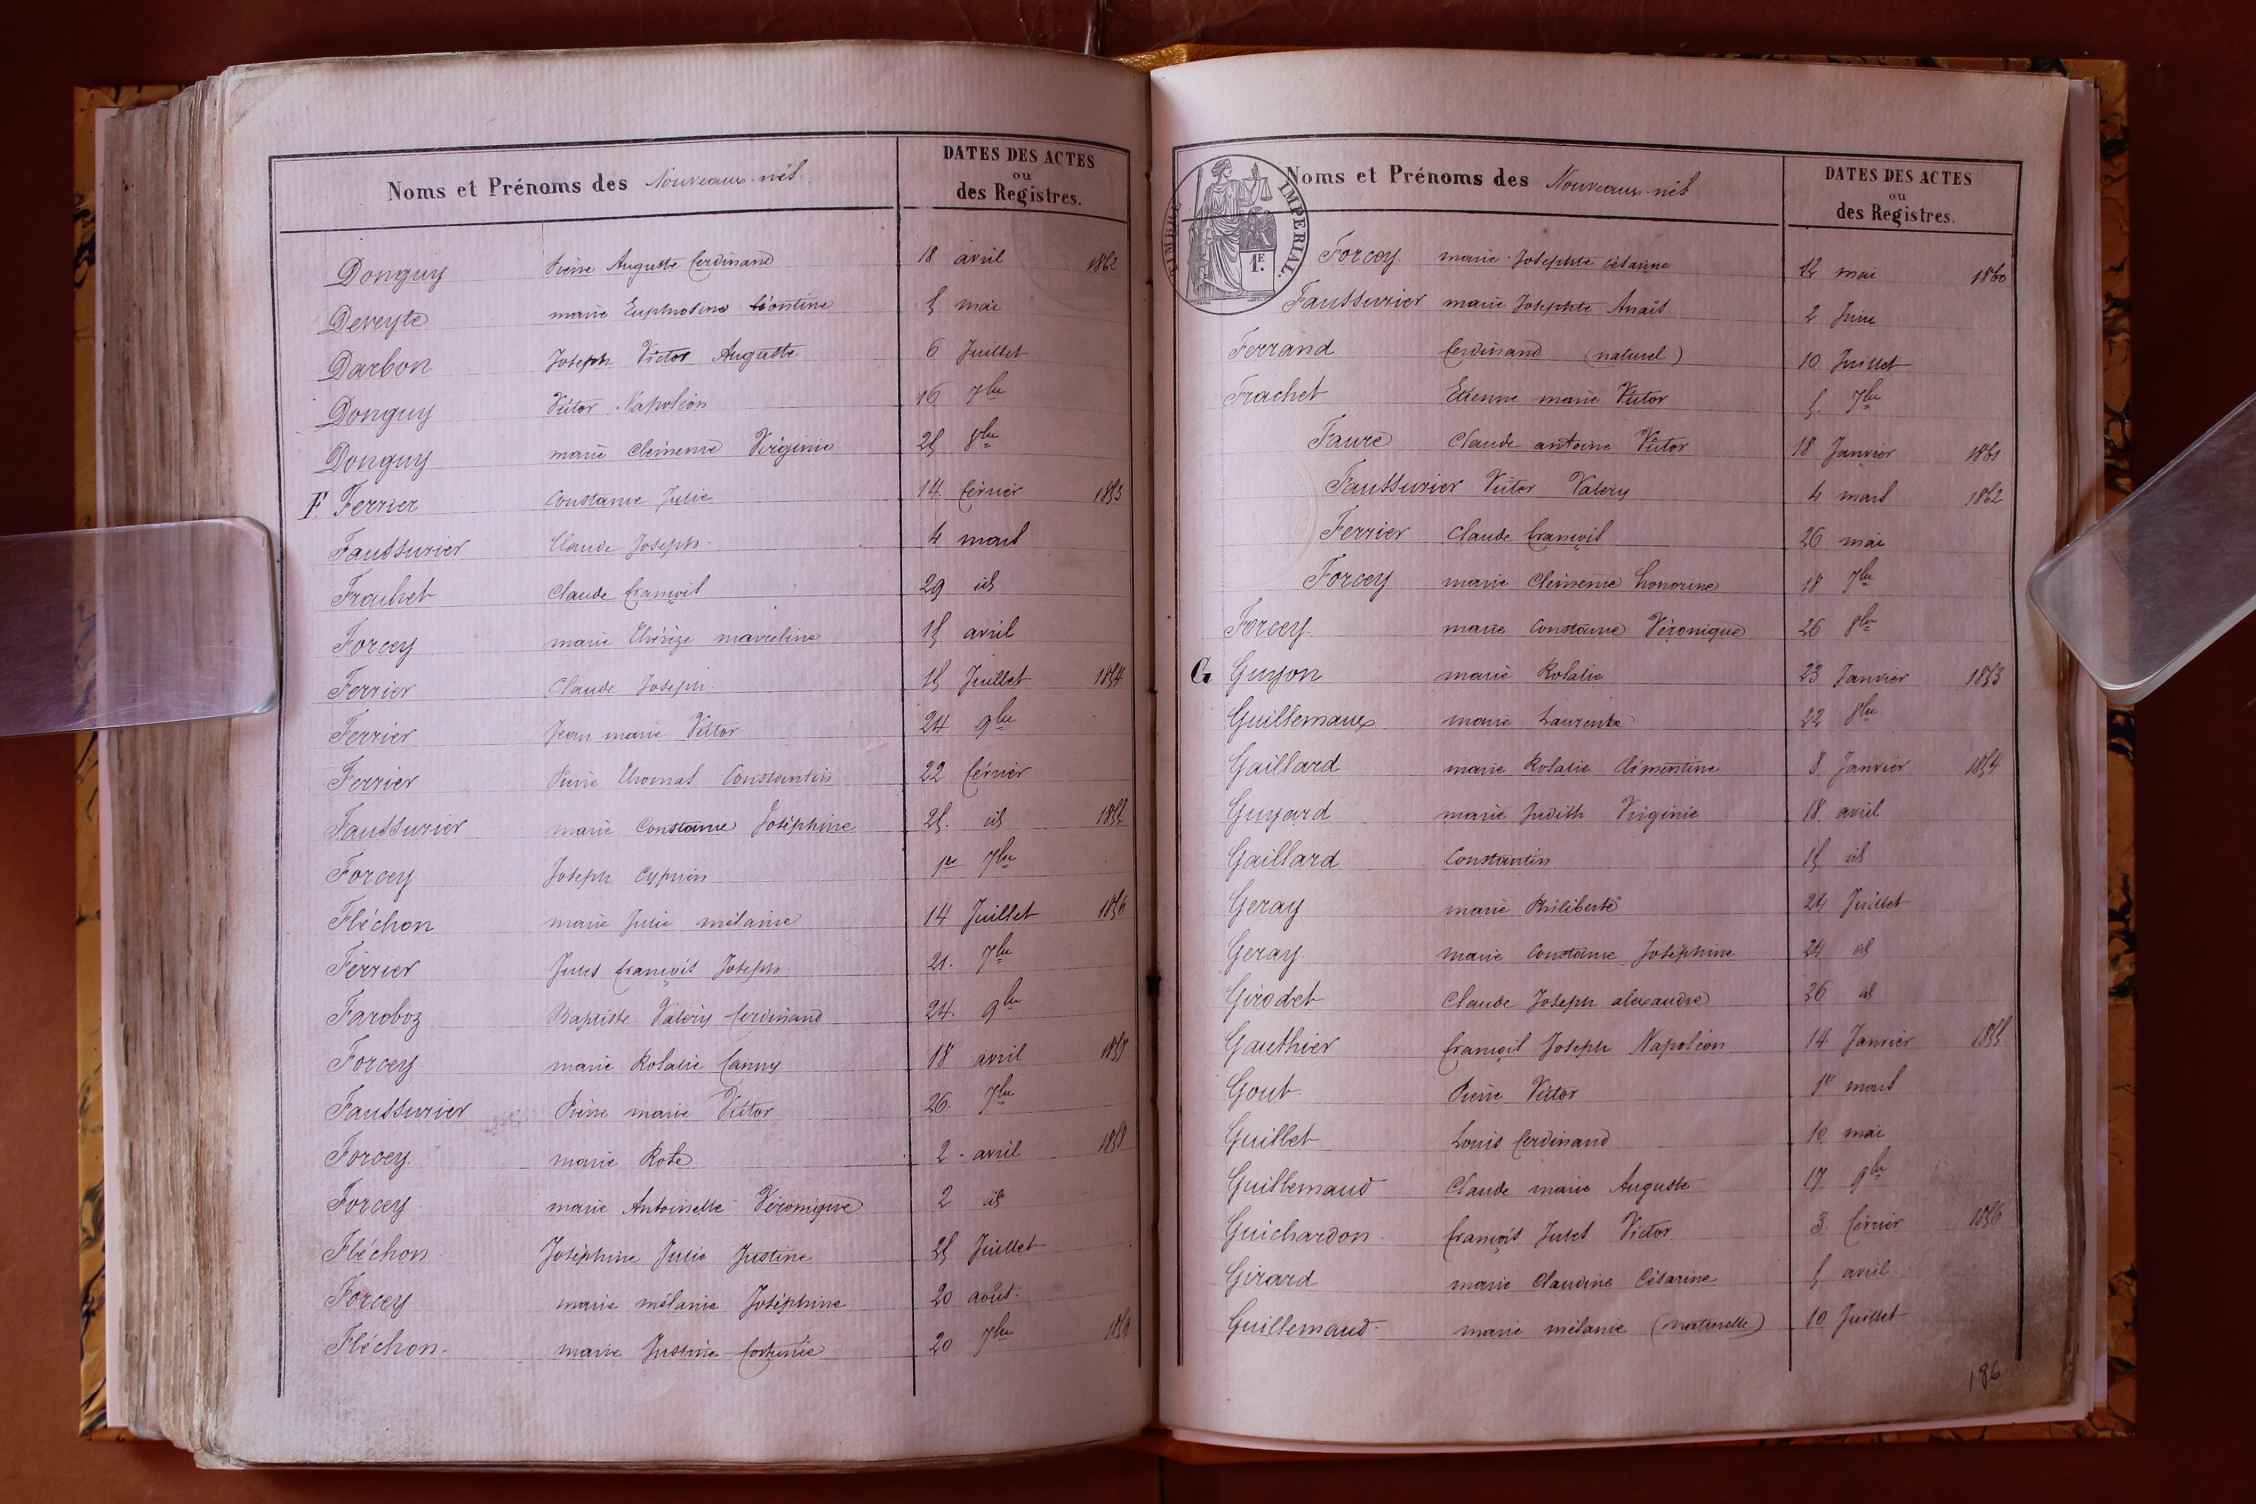 Noms et Prénoms des Nouveaux-nés
DATES DES ACTES
ou
des Registres.
Donguy Pierre Auguste Ferdinand 18 avril 1862
Deveyle marie Euphrosine Léontine 5 mai
Darbon Joseph Victor Auguste 6 Juillet
Donguy Victor Napoléon 16 7bre
Donguy marie Clémence Virginie 25 8bre
F Ferrier Constance Julie 14 février 1853
Faussurier Claude Joseph 4 mars
Frachet Claude françois 29 id
Forcey marie Thérèze marceline 15 avril
Ferrier Claude Joseph 15 Juillet 1854
Ferrier Jean marie Victor 24 9bre
Ferrier Pierre Thomas Constantin 22 février
Faussurier marie Constance Joséphine 25 id 1855
Forcey Joseph Cyprien 1er 7bre
Fléchon marie Julie mélanie 14 Juillet 1856
Ferrier Jules françois Joseph 21 7bre
Faroboz Baptiste Valéry ferdinand 24 9bre
Forcey marie Rosalie fanny 18 avril 1857
Faussurier Pierre marie Victor 26 7bre
Forcey marie Rose 2 avril 1858
Forcey marie Antoinette Véronique 2 id
Fléchon Joséphine Julie Justine 25 Juillet
Forcey marie mélanie Joséphine 20 août
Fléchon marie Justine fortunée 20 7bre 1859
TIMBRE IMPERIAL.
1F.
Noms et Prénoms des Nouveaux-nés
DATES DES ACTES
ou
des Registres.
Forcey marie Josephte césarine 12 mai 1860
Faussurier marie Josephte Anaïs 2 Juin
Ferrand ferdinand (naturel) 10 Juillet
Frachet Etienne marie Victor 5 7bre
Faure Claude antoine Victor 18 Janvier 1861
Faussurier Victor Valery 4 mars 1862
Ferrier Claude françois 26 mai
Forcey marie Clémence honorine 18 7bre
Forcey marie Constance Véronique 26 8bre
G Guyon marie Rosalie 23 Janvier 1853
Guillemaux marie Laurente 22 8bre
Gaillard marie Rosalie Clémentine 8 Janvier 1854
Guyard marie Judith Virginie 18 avril
Gaillard Constantin 15 id
Geray marie Philiberte 24 Juillet
Geray marie Constance Joséphine 24 id
Girodet Claude Joseph alexandre 26 id
Gauthier françois Joseph Napoléon 14 Janvier 1855
Gout Pierre Victor 1er mars
Guillet Louis ferdinand 10 mai
Guillemaud Claude marie Auguste 17 9bre
Guichardon françois Jules Victor 3 février 1856
Girard marie Claudine Césarine 5 avril
Guillemaud marie mélanie (naturelle) 10 Juillet
186